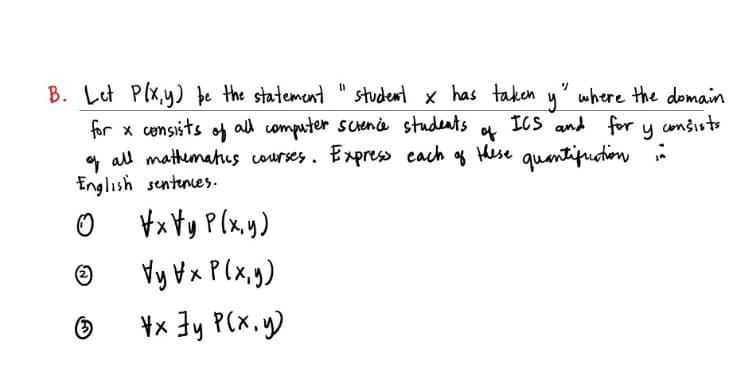 B. Let P(x,y) be the statement "student x has taken y" where the domain
for x consists of all computer science students of ICS and for y consists
of all mathematics courses. Express each of these quantifiction in
English sentences.
① ∀x∀y P(x,y)
② ∀y∀x P(x,y)
③ ∀x ∃y P(x,y)